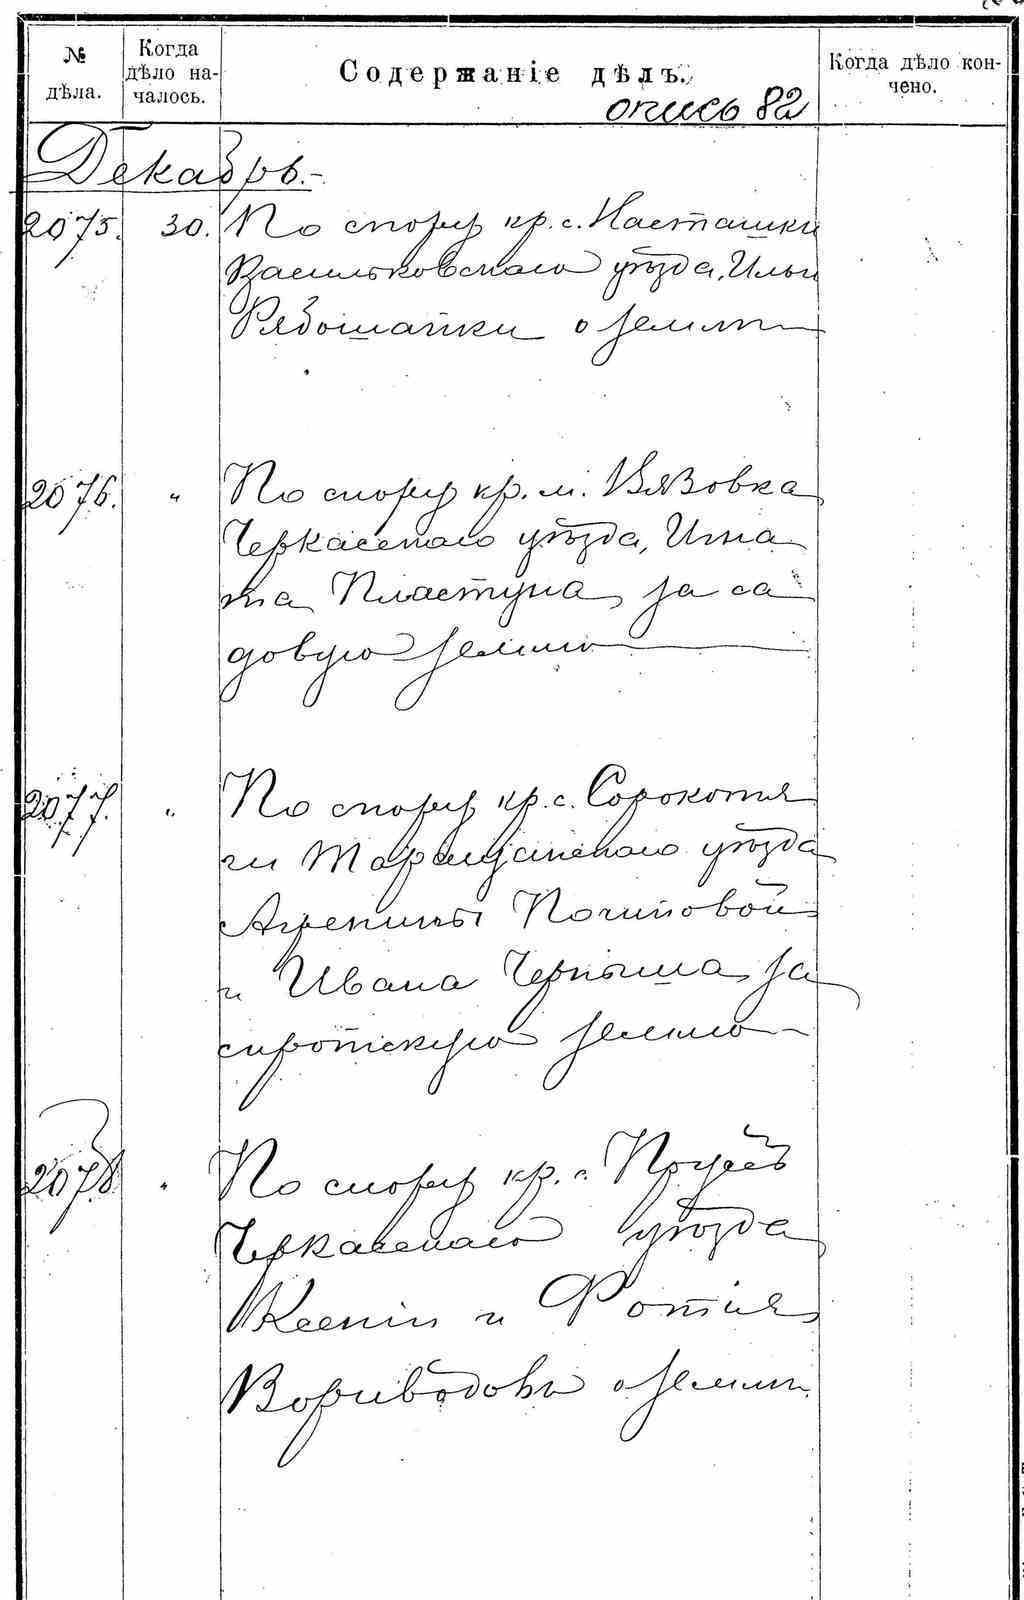 № дѣла.
Когда дѣло на-
чалось.
Содержаніе дѣлъ.
Когда дѣло кон-
чено.
опись 82
Декабрь.
2075. 30. По спору кр. с. Насташки
Васильковскаго уѣзда, Ильи
Рябошапки о землѣ
2076. " По спору кр. м. Вязовка
Черкасскаго уѣзда, Игна
та Пластуна, за са
довую землю
2077. " По спору кр. с. Сорокотя
ги Таращанскаго уѣзда
Агрепины Почиповой
и Ивана Черныша, за
сиротскую землю
2078 " По спору кр. с.
Черкасскаго уѣзда
Ксеніи и Фотія
о землѣ